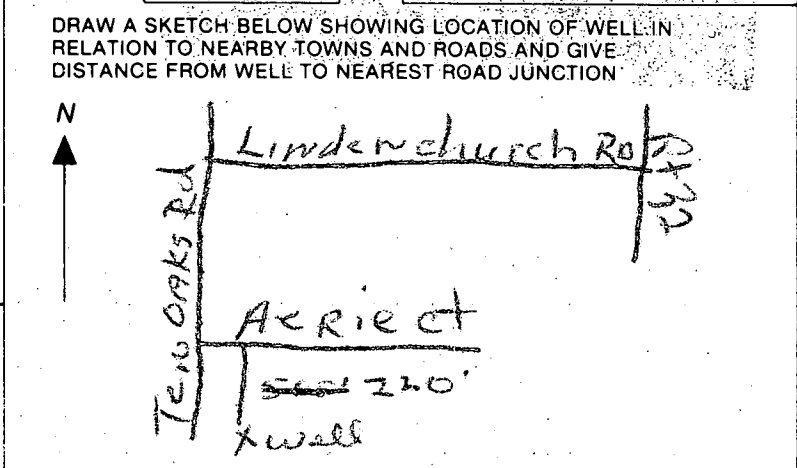 DRAW A SKETCH BELOW SHOWING LOCATION OF WELL IN
RELATION TO NEARBY TOWNS AND ROADS AND GIVE
DISTANCE FROM WELL TO NEAREST ROAD JUNCTION
N
Lindenchurch RD
Rt 32
Ten OAKs Rd
AeRie ct
220'
x well